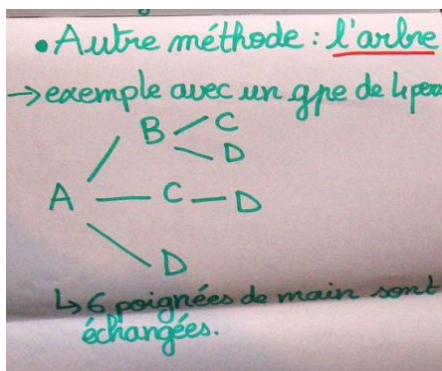 • Autre méthode : l'arbre
→ exemple avec un gpe de 4 pers
B — C
— D
A — C — D
D
↳ 6 poignées de main sont
échangées.